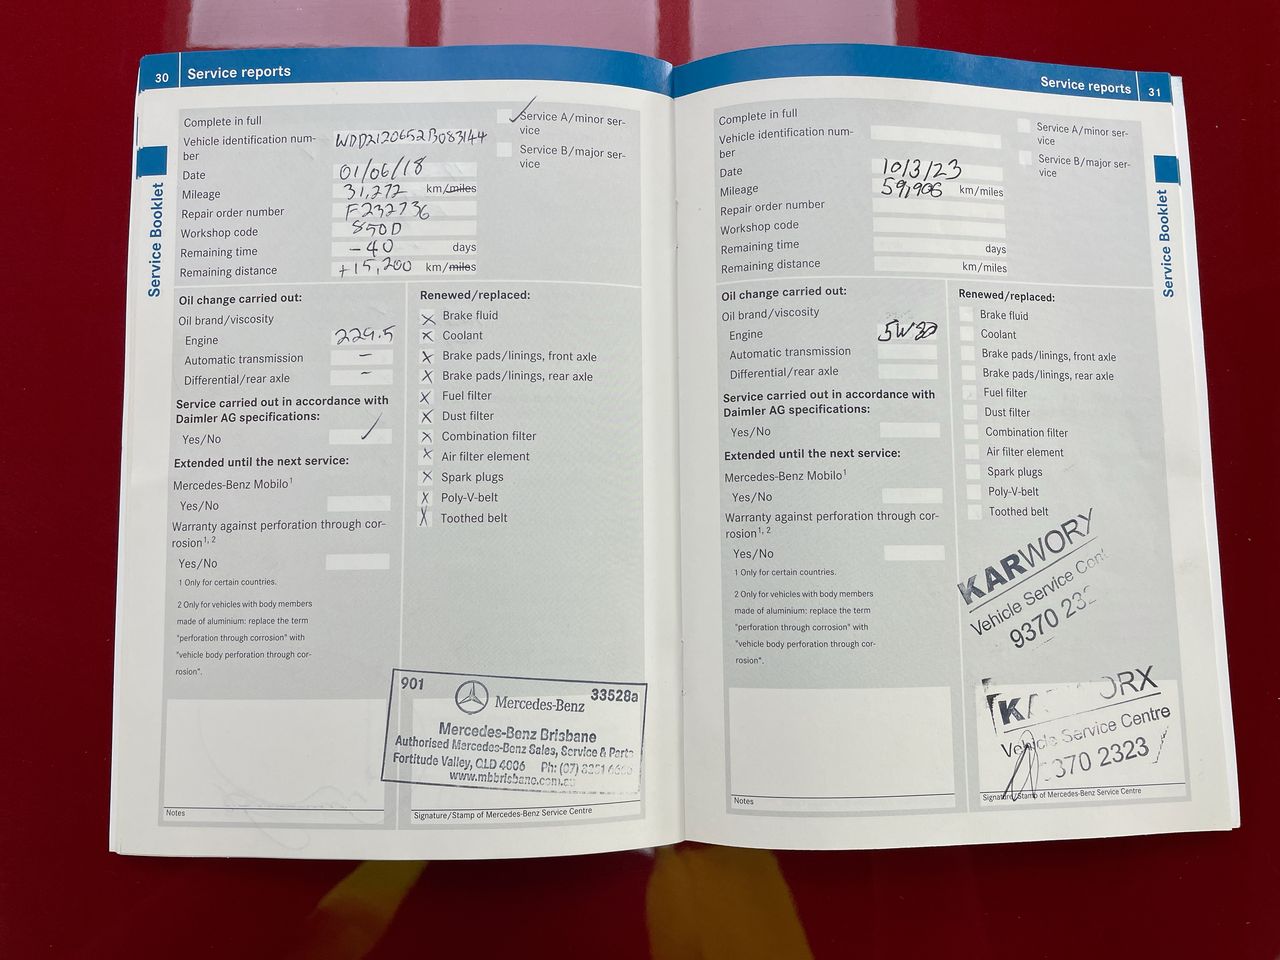 30 Service reports
Complete in full
Vehicle identification num-
ber
WDD2120652B083144
Date 01/06/18
Mileage 31,272 km/miles
Repair order number F232736
Workshop code 850D
Remaining time -40 days
Remaining distance +15,200 km/miles
Service A/minor ser-
vice
Service B/major ser-
vice
Service Booklet
Oil change carried out:
Oil brand/viscosity
Engine 229.5
Automatic transmission -
Differential/rear axle -
Service carried out in accordance with
Daimler AG specifications:
Yes/No
Extended until the next service:
Mercedes-Benz Mobilo1
Yes/No
Warranty against perforation through cor-
rosion1, 2
Yes/No
1 Only for certain countries.
2 Only for vehicles with body members
made of aluminium: replace the term
"perforation through corrosion" with
"vehicle body perforation through cor-
rosion".
Renewed/replaced:
Brake fluid
Coolant
Brake pads/linings, front axle
Brake pads/linings, rear axle
Fuel filter
Dust filter
Combination filter
Air filter element
Spark plugs
Poly-V-belt
Toothed belt
901 Mercedes-Benz 33528a
Mercedes-Benz Brisbane
Authorised Mercedes-Benz Sales, Service & Parts
Fortitude Valley, QLD 4006 Ph: (07)
www.mbbrisbane.com.au
Notes
Signature/Stamp of Mercedes-Benz Service Centre
Service reports 31
Complete in full
Vehicle identification num-
ber
Date 10/3/23
Mileage 59,906 km/miles
Repair order number
Workshop code
Remaining time days
Remaining distance km/miles
Service A/minor ser-
vice
Service B/major ser-
vice
Service Booklet
Oil change carried out:
Oil brand/viscosity
Engine 5W30
Automatic transmission
Differential/rear axle
Service carried out in accordance with
Daimler AG specifications:
Yes/No
Extended until the next service:
Mercedes-Benz Mobilo1
Yes/No
Warranty against perforation through cor-
rosion1, 2
Yes/No
1 Only for certain countries.
2 Only for vehicles with body members
made of aluminium: replace the term
"perforation through corrosion" with
"vehicle body perforation through cor-
rosion".
Renewed/replaced:
Brake fluid
Coolant
Brake pads/linings, front axle
Brake pads/linings, rear axle
Fuel filter
Dust filter
Combination filter
Air filter element
Spark plugs
Poly-V-belt
Toothed belt
Vehicle Service
9370
Vehicle Service Centre
2323
Notes
Signature/Stamp of Mercedes-Benz Service Centre